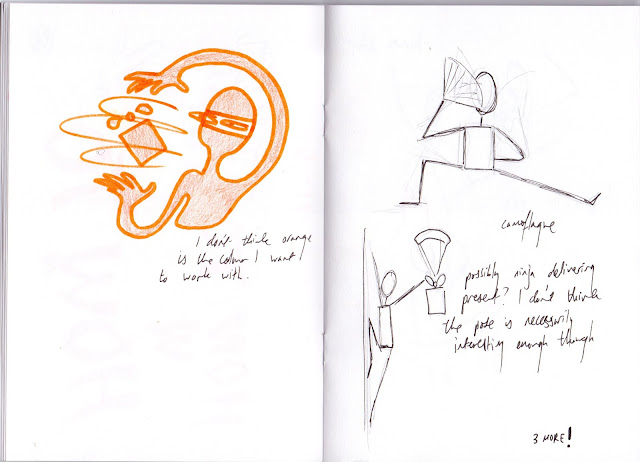 I don't think orange
is the colour I want
to work with.
camoflague
possibly ninja delivering
present? I don't think
the pose is necessarily
interesting enough though
3 MORE!